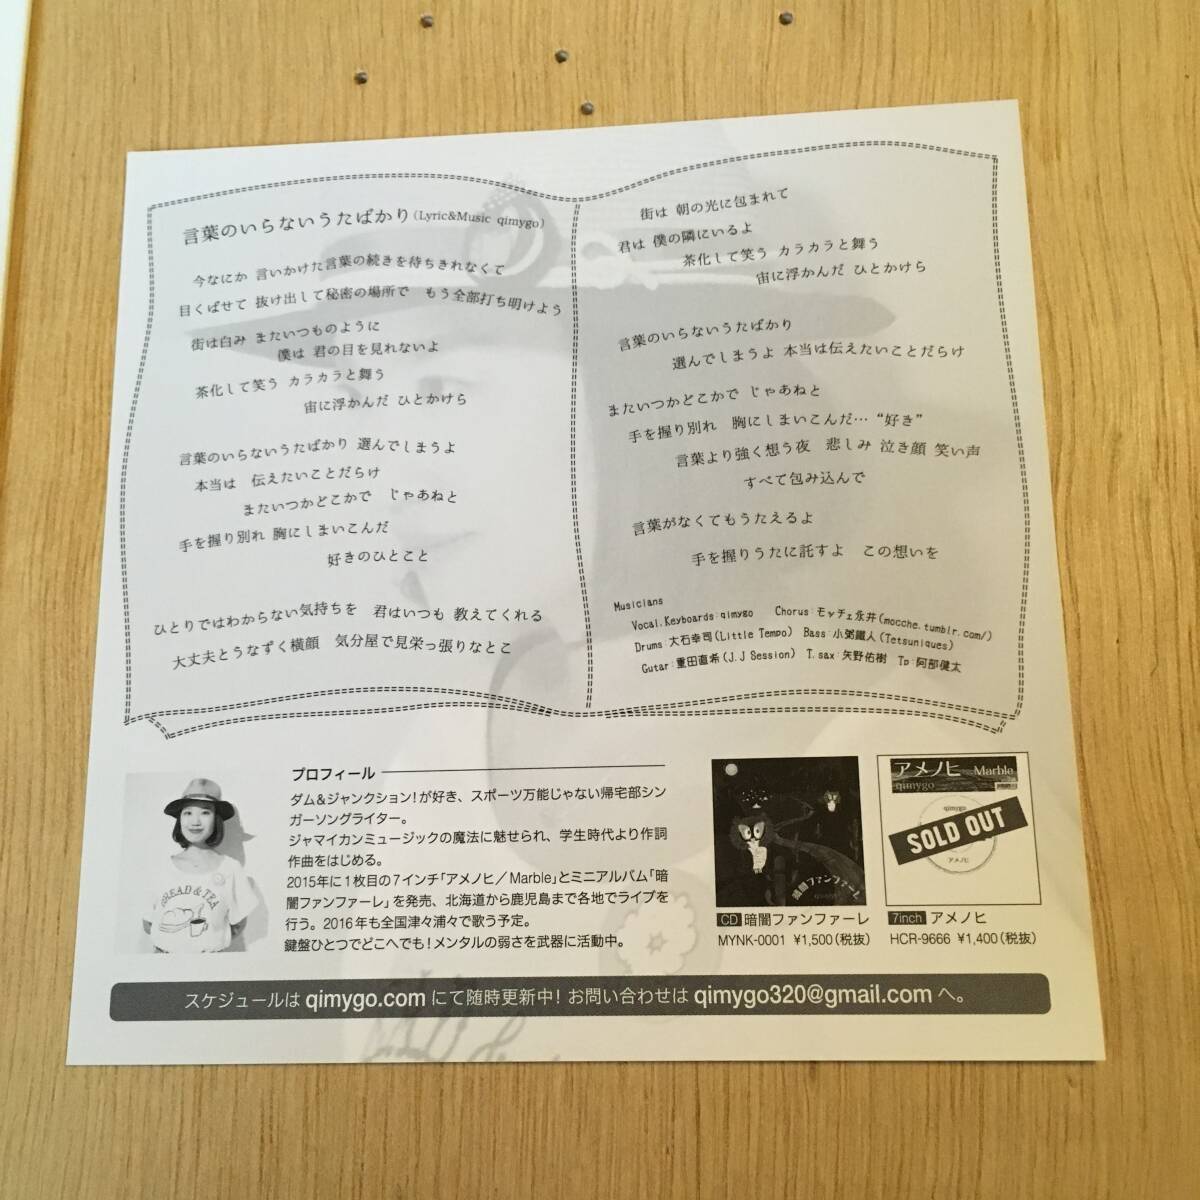 言葉のいらないうたばかり(Lyric&Music qimygo)
今なにか 言いかけた言葉の続きを待ちきれなくて
目くばせて 抜け出して秘密の場所で　もう全部打ち明けよう
街は白み またいつものように
僕は 君の目を見れないよ
茶化して笑う カラカラと舞う
宙に浮かんだ ひとかけら
言葉のいらないうたばかり 選んでしまうよ
本当は　伝えたいことだらけ
またいつかどこかで　じゃあねと
手を握り別れ 胸にしまいこんだ
好きのひとこと
ひとりではわからない気持ちを　君はいつも 教えてくれる
大丈夫とうなずく横顔　気分屋で見栄っ張りなとこ
街は 朝の光に包まれて
君は 僕の隣にいるよ
茶化して笑う カラカラと舞う
宙に浮かんだ ひとかけら
言葉のいらないうたばかり
選んでしまうよ 本当は伝えたいことだらけ
またいつかどこかで じゃあねと
手を握り別れ　胸にしまいこんだ…“好き”
言葉より強く想う夜　悲しみ 泣き顔 笑い声
すべて包み込んで
言葉がなくてもうたえるよ
手を握りうたに託すよ　この想いを
Musicians
Vocal.Keyboards:qimygo　Chorus:モッチェ永井(mocche.tumblr.com/)
Drums:大石幸司(Little Tempo)　Bass:小粥鐵人(Tetsuniques)
Gutar:重田直希(J.J Session)　T.sax:矢野佑樹　Tp:阿部健太
プロフィール
ダム&ジャンクション!が好き、スポーツ万能じゃない帰宅部シン
ガーソングライター。
ジャマイカンミュージックの魔法に魅せられ、学生時代より作詞
作曲をはじめる。
2015年に1枚目の7インチ「アメノヒ／Marble」とミニアルバム「暗
闇ファンファーレ」を発売、北海道から鹿児島まで各地でライブを
行う。2016年も全国津々浦々で歌う予定。
鍵盤ひとつでどこへでも!メンタルの弱さを武器に活動中。
BREAD & TEA
暗闇ファンファーレ
CD 暗闇ファンファーレ
MYNK-0001 ¥1,500(税抜)
アメノヒ Marble
qimygo
qimygo
SOLD OUT
アメノヒ
7inch アメノヒ
HCR-9666 ¥1,400(税抜)
スケジュールは qimygo.com にて随時更新中! お問い合わせは qimygo320@gmail.com へ。